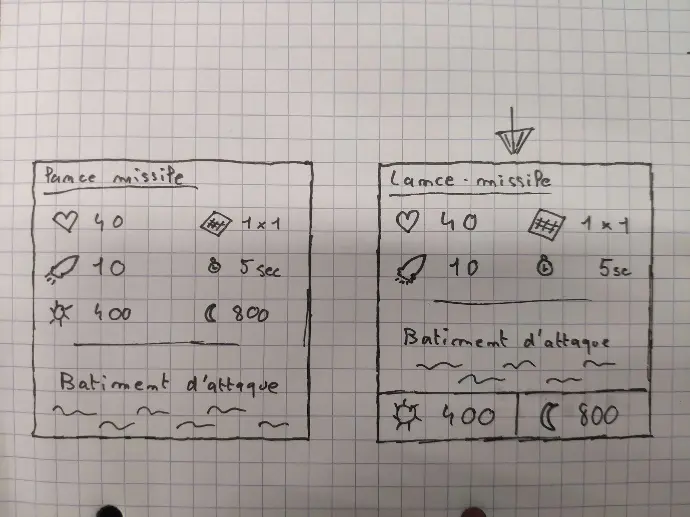 Lance missile
40 1x1
10 5sec
400 800
Batiment d'attaque
Lance-missile
40 1x1
10 5se
Batiment d'attaque
400 800